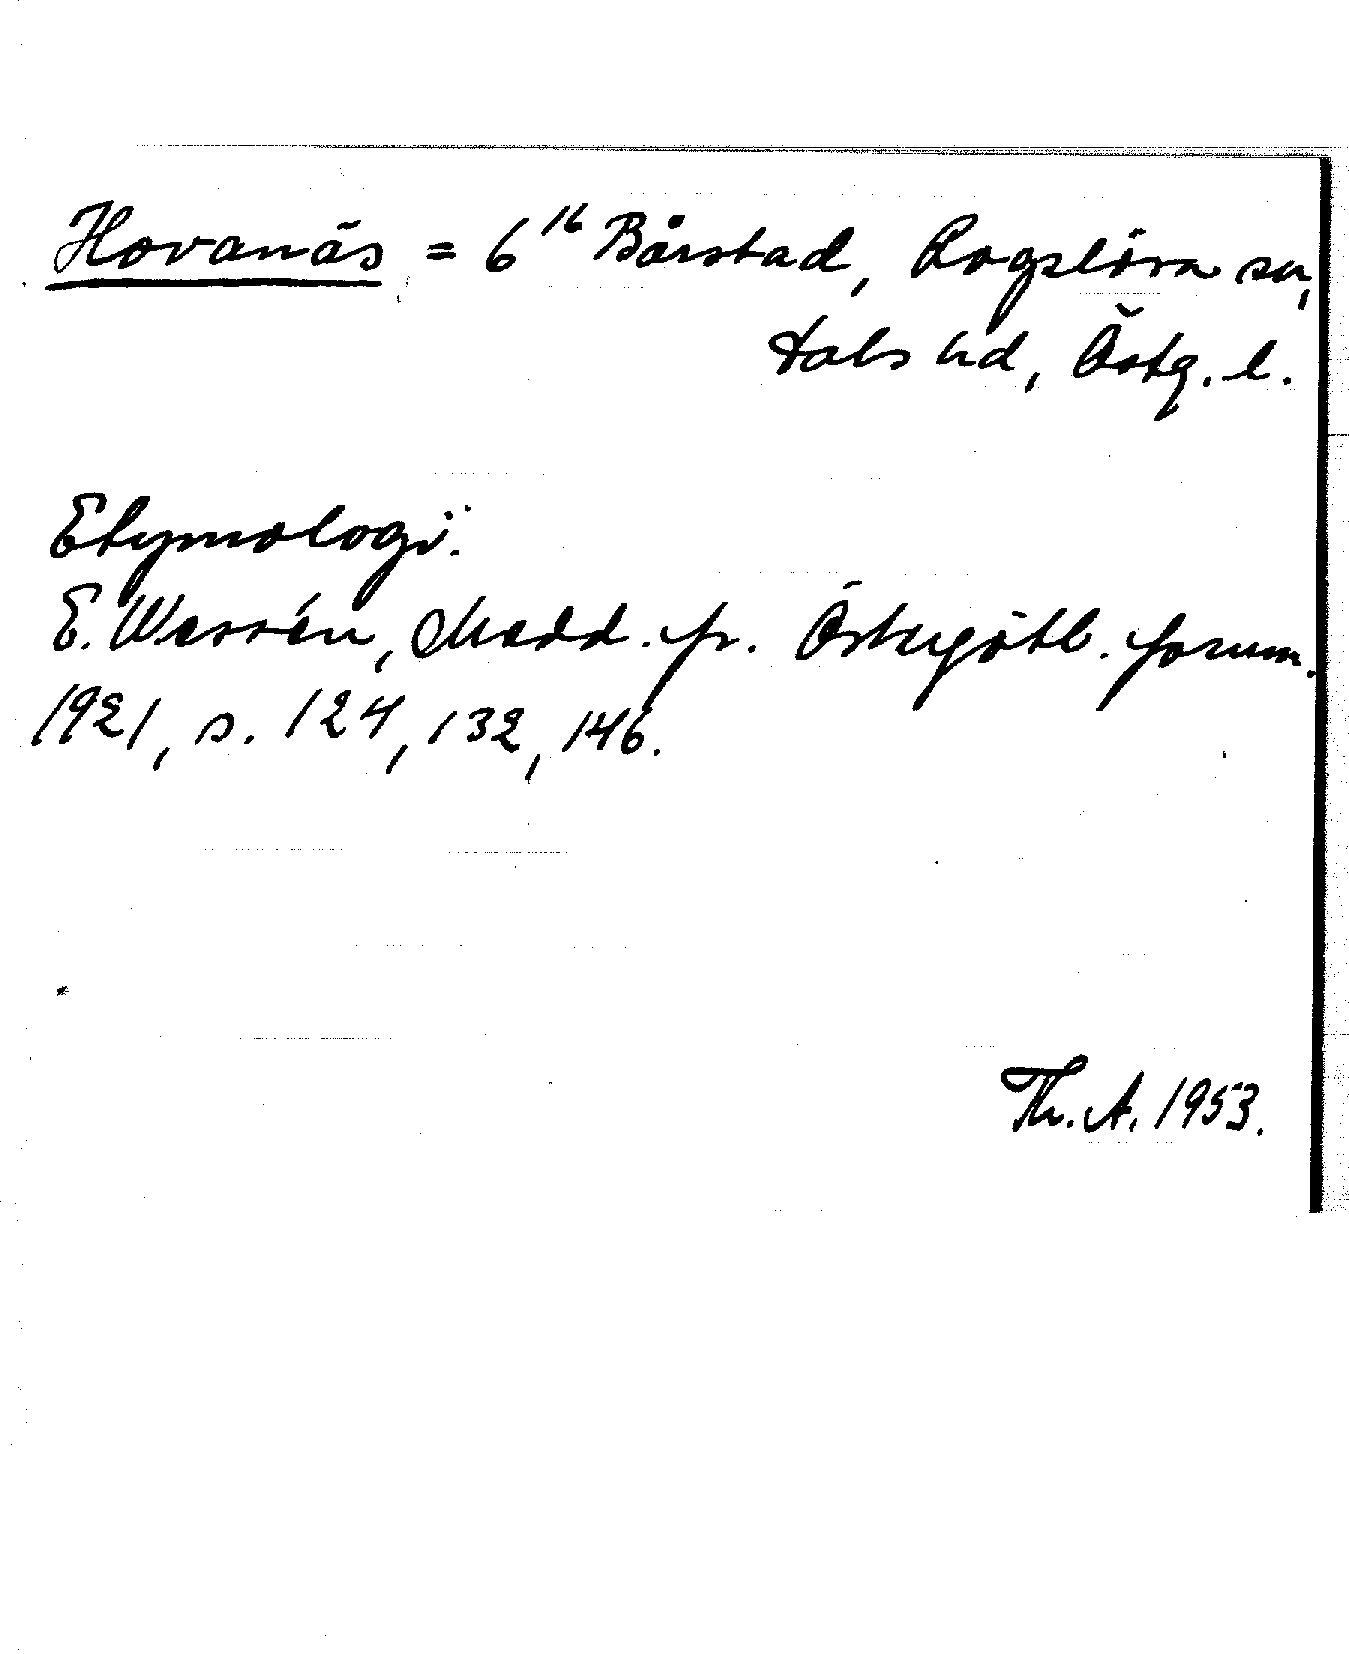 Hovanäs = 6¹⁶ Bårstad, Rogslösa sn,
Dals hd, Östg. l.
Etymologi:
E. Wessén, Medd. fr. Östergötl. fornm.
1921, s. 124, 132, 146.
Th. A. 1953.